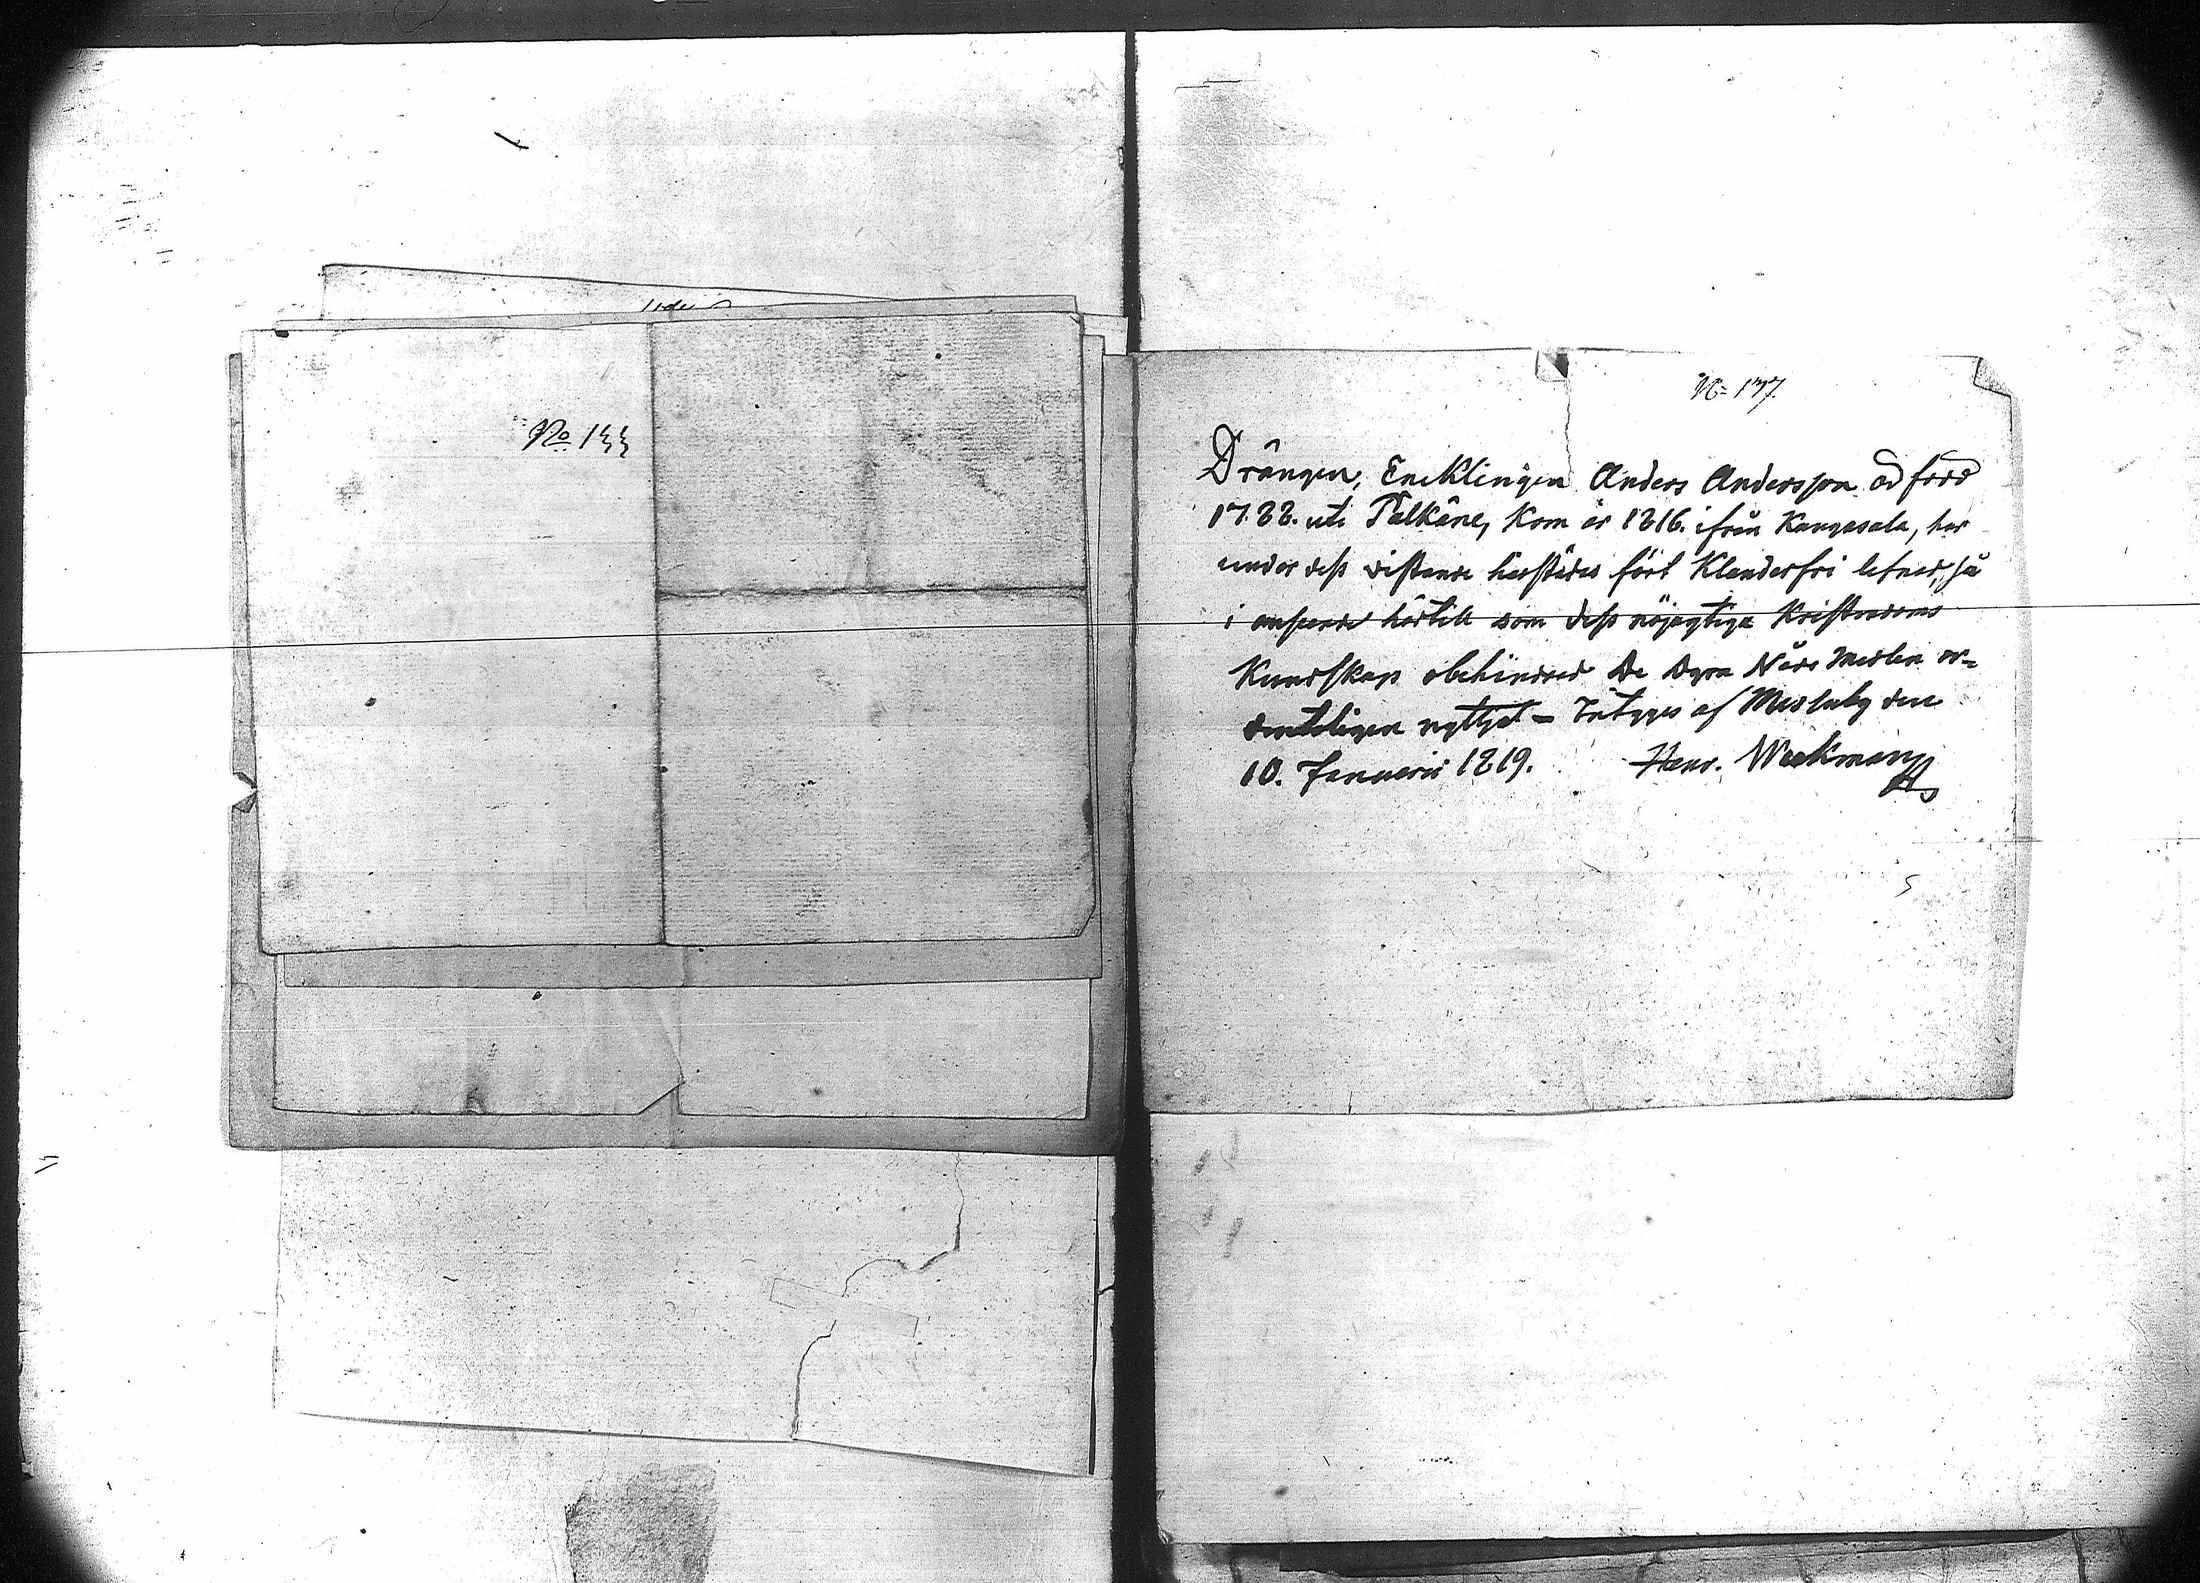 No 133
No 177.
Drängen, Encklingen Anders Andersson född
1788. uti Pälkäne, kom år 1816. ifrån Kangasala, har
under dess vistande härstädes fört klanderfri lefnad, så
i anseende härtill som dess nöjagtiga Kristendoms
Kundskap obehindrad De Dyra Nåde Medlen or=
denteligen nyttjat — Intygas af Messuby den
10. Januarii 1819. Henr. Weckman